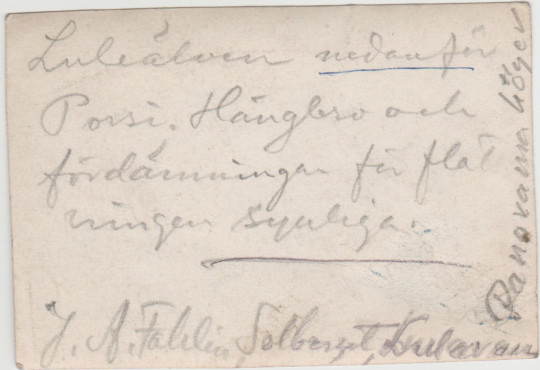 Luleälven nedanför
Porsi. Hängbro och
fördämningar för flot
ningen synliga.
J. A. Fahlin, Solberget,
Panorama höger